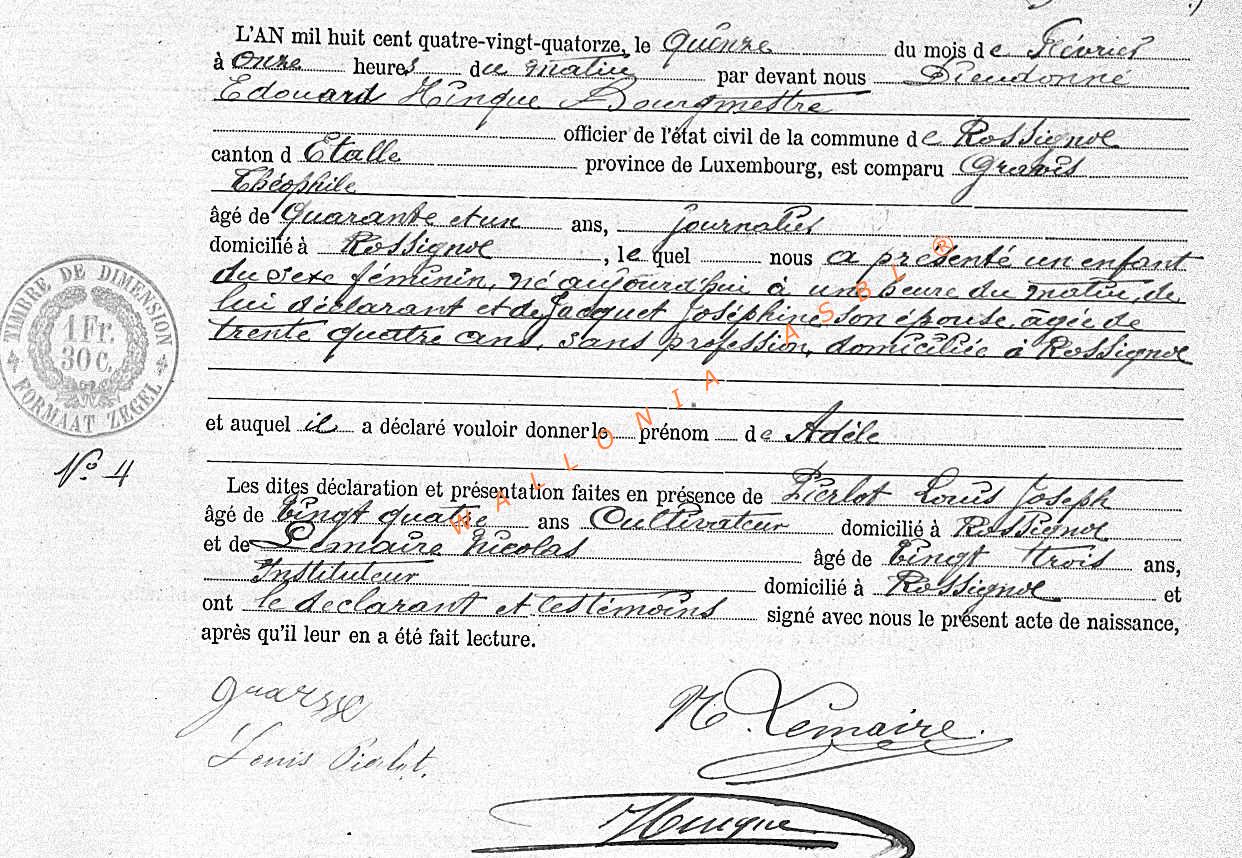 L'AN mil huit cent quatre-vingt-quatorze, le Quinze du mois de Février
à Onze heures du matin par devant nous Dieudonné
Edouard Hinque Bourgmestre
officier de l'état civil de la commune de Rossignol
canton d Etalle province de Luxembourg, est comparu
Théophile
âgé de Quarante et un ans, journalier
domicilié à Rossignol, le quel nous a présenté un enfant
du sexe féminin, né aujourd'hui à une heure du matin, de
lui déclarant et de Jacquet Joséphine son épouse, âgée de
trente quatre ans, sans profession, domiciliée à Rossignol
et auquel il a déclaré vouloir donner le prénom de Adèle
Les dites déclaration et présentation faites en présence de Pierlot Louis Joseph
âgé de Vingt quatre ans Cultivateur domicilié à Rossignol
et de Lemaire Nicolas âgé de Vingt trois ans,
Instituteur domicilié à Rossignol et
ont le déclarant et les témoins signé avec nous le présent acte de naissance,
après qu'il leur en a été fait lecture.
TIMBRE DE DIMENSION
1 Fr.
30 C.
FORMAAT ZEGEL
No 4
N. Lemaire.
Louis Pierlot.
Hinque
WALLONIA ASBL ®